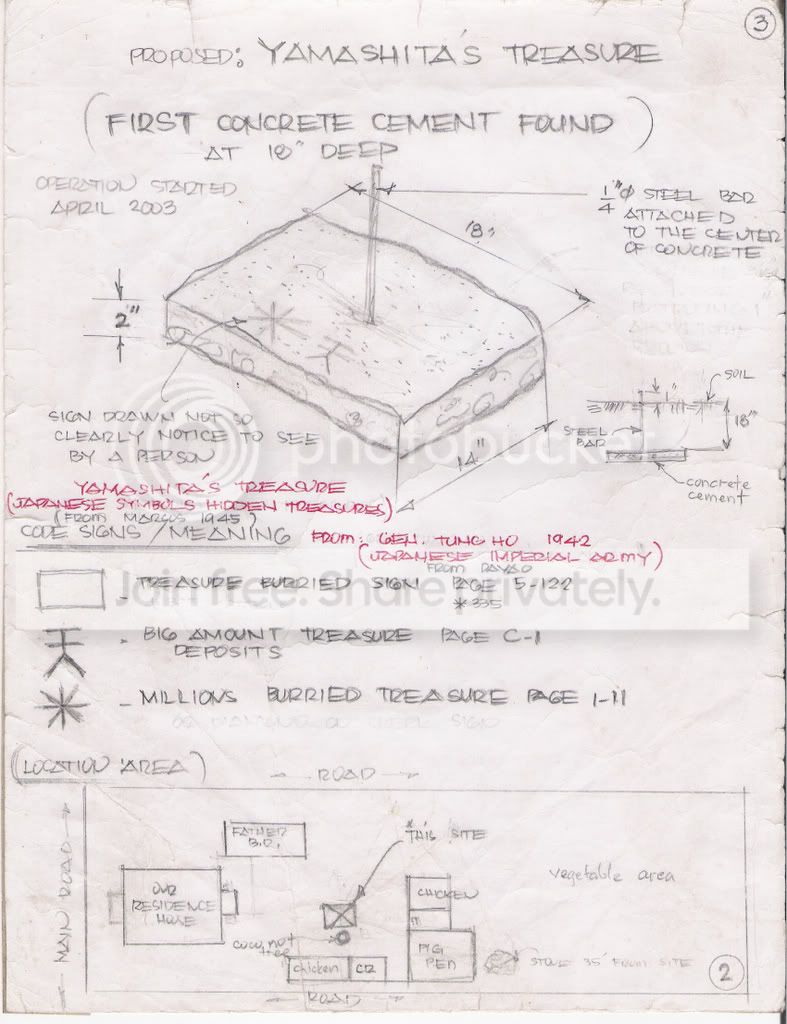 3
PROPOSED: YAMASHITA'S TREASURE
(FIRST CONCRETE CEMENT FOUND)
AT 18" DEEP
OPERATION STARTED
APRIL 2003
1/4" Ø STEEL BAR
ATTACHED
TO THE CENTER
OF CONCRETE
18"
2"
14"
SIGN DRAWN NOT SO
CLEARLY NOTICE TO SEE
BY A PERSON
1"
SOIL
18"
STEEL
BAR
concrete
cement
photobucket
YAMASHITA'S TREASURE
(JAPANESE SYMBOLS HIDDEN TREASURES)
(FROM MARCOS 1945)
CODE SIGNS / MEANING
FROM: GEN. TUNG HO 1942
(JAPANESE IMPERIAL ARMY)
FROM DAVAO
- TREASURE BURRIED SIGN PAGE 5-122
*335
Join free. Share Privately.
- BIG AMOUNT TREASURE PAGE C-1
DEPOSITS
- MILLIONS BURRIED TREASURE PAGE 1-11
(LOCATION AREA)
ROAD
MAIN ROAD
FATHER
B.R.
* THIS SITE
OUR
RESIDENCE
HOUSE
CHICKEN
vegetable area
coconut
tree
chicken
CR
PIG
PEN
STONE 35' FROM SITE
2
ROAD